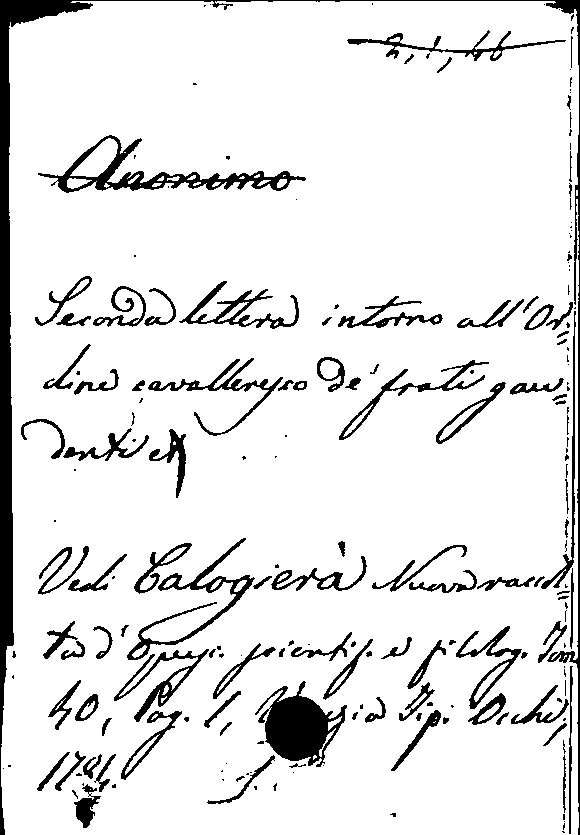 2, 1, 46
Anonimo
Seconda lettera intorno all'Or=
dine cavalleresco de' frati gau=
denti
Vedi Calogierà Nuova raccol=
ta d'Opusc. scientif. e filolog. Tom.
40, Pag. 1, Tip. Occhi,